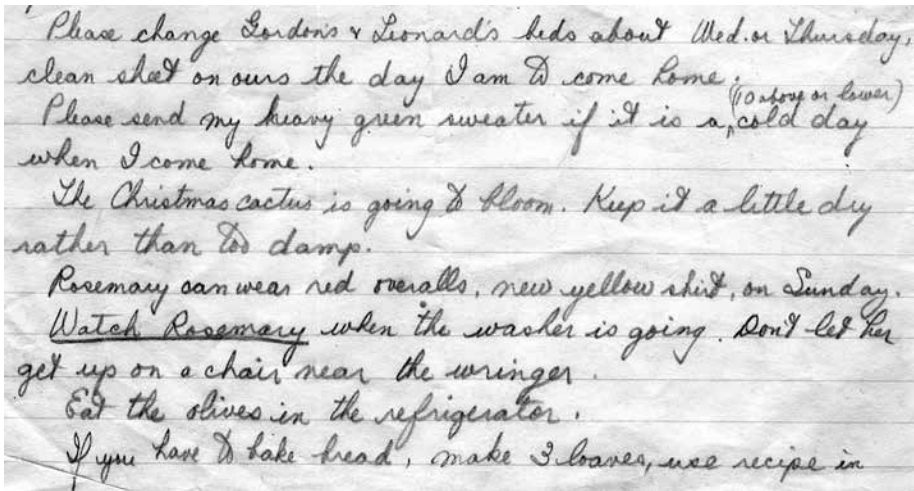 Please change Gordon's & Leonard's beds about Wed. or Thursday,
clean sheet on ours the day I am to come home.
(10 above or lower)
Please send my heavy green sweater if it is a, cold day
when I come home.
The Christmas cactus is going to bloom. Keep it a little dry
rather than too damp.
Rosemary can wear red overalls, new yellow shirt, on Sunday.
Watch Rosemary when the washer is going. Don't let her
get up on a chair near the wringer.
Eat the olives in the refrigerator.
If you have to bake bread, make 3 loaves, use recipe in